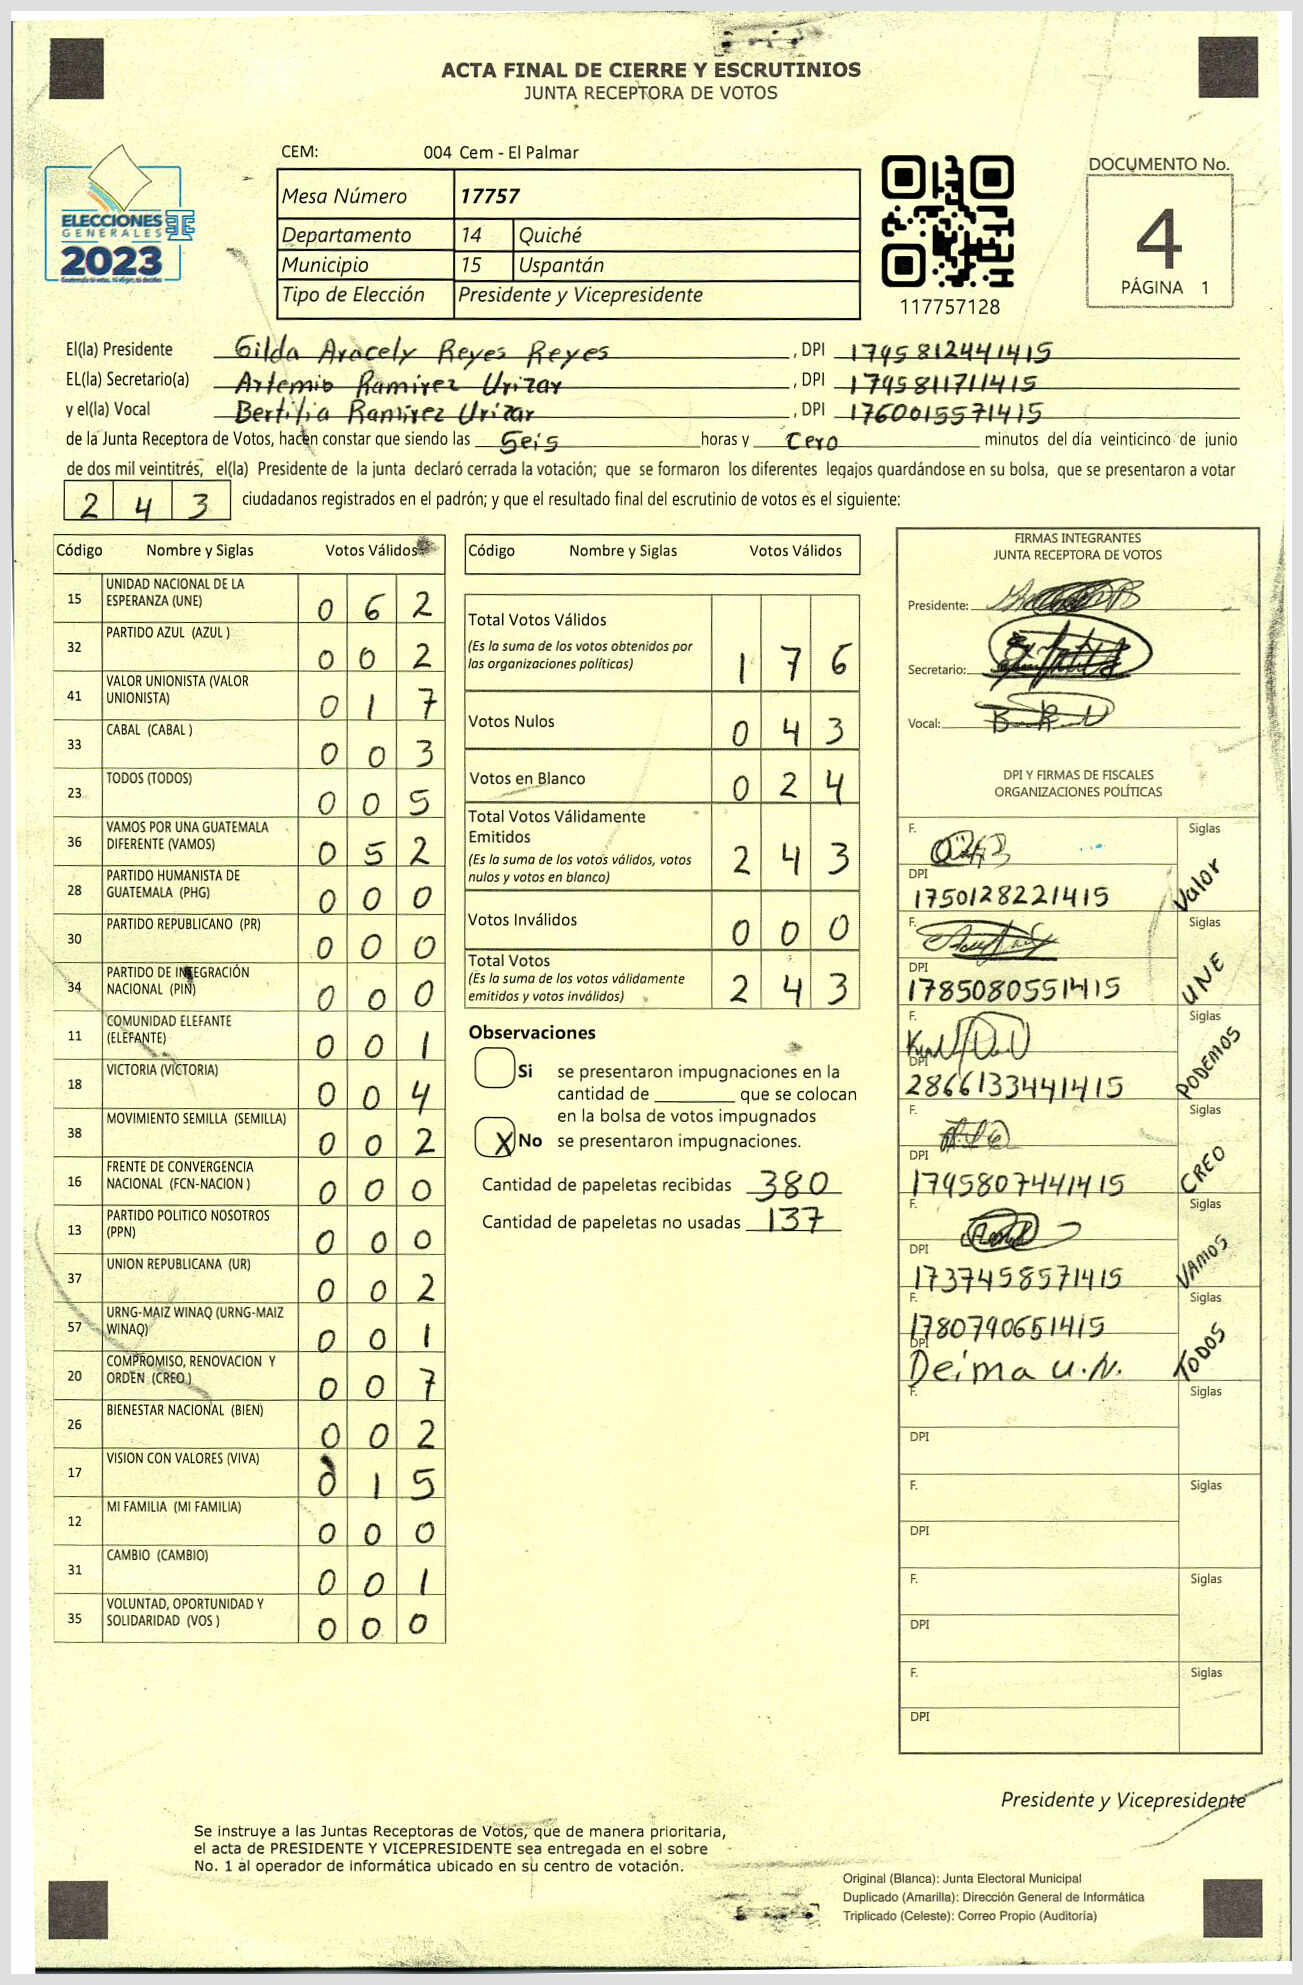 ACTA FINAL DE CIERRE Y ESCRUTINIOS
JUNTA RECEPTORA DE VOTOS
ELECCIONES
GENERALES
2023
CEM: 004 Cem - El Palmar
Mesa Número 17757
Departamento 14 Quiché
Municipio 15 Uspantán
Tipo de Elección Presidente y Vicepresidente
117757128
DOCUMENTO No.
4
PÁGINA 1
El(la) Presidente Gilda Aracely Reyes Reyes , DPI 1795812441415
EL(la) Secretario(a) Artemio Ramirez Urizar , DPI 1795811711415
y el(la) Vocal Bertilia Ramirez Urizar , DPI 1760015571415
de la Junta Receptora de Votos, hacen constar que siendo las Seis horas y Cero minutos del día veinticinco de junio
de dos mil veintitrés, el(la) Presidente de la junta declaró cerrada la votación; que se formaron los diferentes legajos quardándose en su bolsa, que se presentaron a votar
2 4 3 ciudadanos registrados en el padrón; y que el resultado final del escrutinio de votos es el siguiente:
Código Nombre y Siglas Votos Válidos
15 UNIDAD NACIONAL DE LA
ESPERANZA (UNE) 0 6 2
32 PARTIDO AZUL (AZUL ) 0 0 2
41 VALOR UNIONISTA (VALOR
UNIONISTA) 0 1 7
33 CABAL (CABAL ) 0 0 3
23 TODOS (TODOS) 0 0 5
36 VAMOS POR UNA GUATEMALA
DIFERENTE (VAMOS) 0 5 2
28 PARTIDO HUMANISTA DE
GUATEMALA (PHG) 0 0 0
30 PARTIDO REPUBLICANO (PR) 0 0 0
34 PARTIDO DE INTEGRACIÓN
NACIONAL (PIN) 0 0 0
11 COMUNIDAD ELEFANTE
(ELEFANTE) 0 0 1
18 VICTORIA (VICTORIA) 0 0 4
38 MOVIMIENTO SEMILLA (SEMILLA) 0 0 2
16 FRENTE DE CONVERGENCIA
NACIONAL (FCN-NACION ) 0 0 0
13 PARTIDO POLITICO NOSOTROS
(PPN) 0 0 0
37 UNION REPUBLICANA (UR) 0 0 2
57 URNG-MAIZ WINAQ (URNG-MAIZ
WINAQ) 0 0 1
20 COMPROMISO, RENOVACION Y
ORDEN (CREO ) 0 0 7
26 BIENESTAR NACIONAL (BIEN) 0 0 2
17 VISION CON VALORES (VIVA) 0 1 5
12 MI FAMILIA (MI FAMILIA) 0 0 0
31 CAMBIO (CAMBIO) 0 0 1
35 VOLUNTAD, OPORTUNIDAD Y
SOLIDARIDAD (VOS ) 0 0 0
Código Nombre y Siglas Votos Válidos
Total Votos Válidos
(Es la suma de los votos obtenidos por
las organizaciones políticas) 1 7 6
Votos Nulos 0 4 3
Votos en Blanco 0 2 4
Total Votos Válidamente
Emitidos
(Es la suma de los votos válidos, votos
nulos y votos en blanco) 2 4 3
Votos Inválidos 0 0 0
Total Votos
(Es la suma de los votos válidamente
emitidos y votos inválidos) 2 4 3
Observaciones
Si se presentaron impugnaciones en la
cantidad de ________ que se colocan
en la bolsa de votos impugnados
X No se presentaron impugnaciones.
Cantidad de papeletas recibidas 380
Cantidad de papeletas no usadas 137
FIRMAS INTEGRANTES
JUNTA RECEPTORA DE VOTOS
Presidente:
Secretario:
Vocal:
DPI Y FIRMAS DE FISCALES
ORGANIZACIONES POLÍTICAS
F. Siglas
DPI Valor
1750128221415
F. Siglas
DPI UNE
1785080551415
F. Siglas
DPI PODEMOS
2866133441415
F. Siglas
DPI CREO
1795807441415
F. Siglas
DPI VAMOS
1737458571415
F. Siglas
1780790651415
DPI TODOS
Deima U.N.
F. Siglas
DPI
F. Siglas
DPI
F. Siglas
DPI
F. Siglas
DPI
Presidente y Vicepresidente
Se instruye a las Juntas Receptoras de Votos, que de manera prioritaria,
el acta de PRESIDENTE Y VICEPRESIDENTE sea entregada en el sobre
No. 1 al operador de informática ubicado en su centro de votación.
Original (Blanca): Junta Electoral Municipal
Duplicado (Amarilla): Dirección General de Informática
Triplicado (Celeste): Correo Propio (Auditoría)